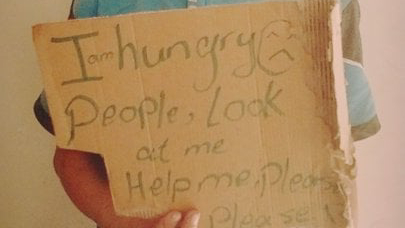 I am hungry
People, Look
at me
Help me, Please
Please!